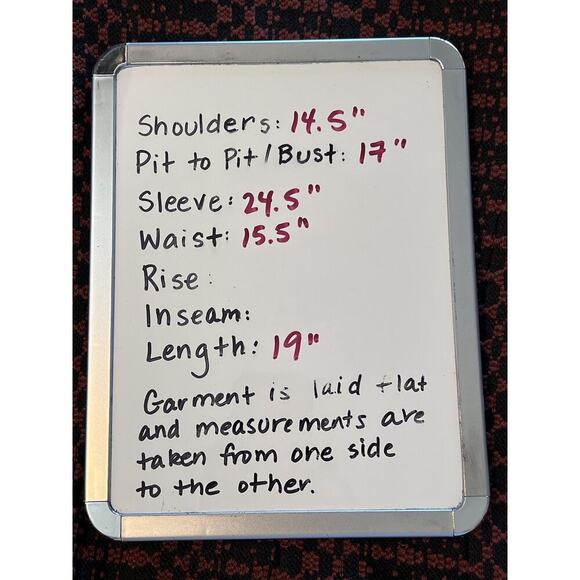 Shoulders: 14.5"
Pit to Pit/Bust: 17"
Sleeve: 24.5"
Waist: 15.5"
Rise:
Inseam:
Length: 19"
Garment is laid flat
and measurements are
taken from one side
to the other.